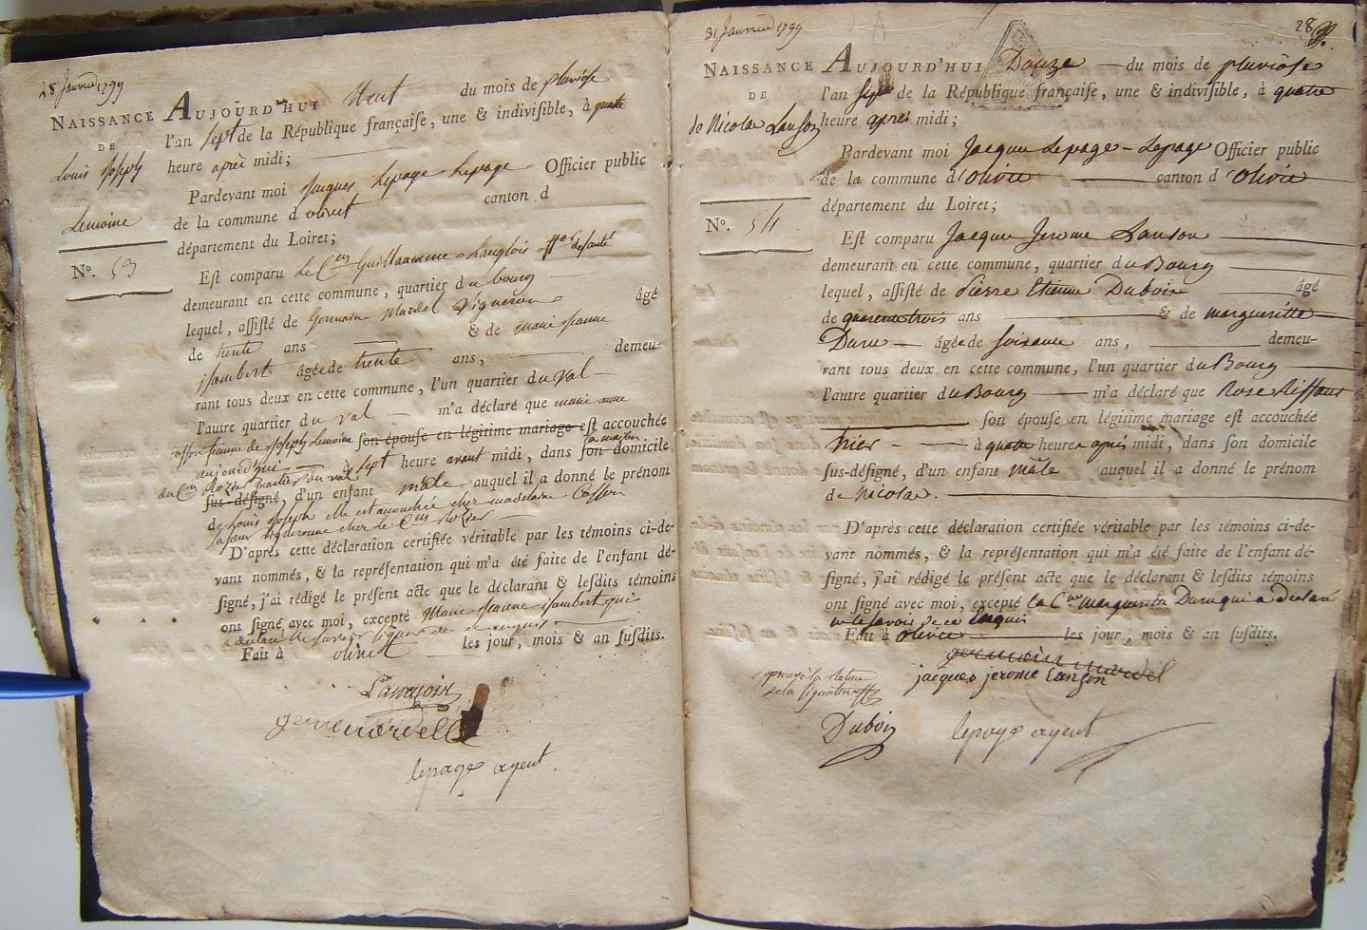 NAISSANCE
DE
Louis Joseph
Lemoine
N°. 53
AUJOURD'HUI du mois de pluviose
l'an sept de la République françaiſe, une & indiviſible, à quatre
heure après midi;
Pardevant moi Jacques Lepage Lepage Officier public
de la commune d'olivet canton d
département du Loiret;
Eſt comparu le Cen Guillaume Langlois off. de santé
demeurant en cette commune, quartier du bourg
lequel, aſſiſté de Germain Vigneron âgé
de trente ans & de marie jeanne
jsambert âgée de trente ans, demeu-
rant tous deux en cette commune, l'un quartier du val
l'autre quartier du val m'a déclaré que marie anne
femme de Joseph Lemoine ſon épouſe en légitime mariage eſt accouchée
aujourd'hui à sept heure avant midi, dans ſon domicile
ſus-déſigné, d'un enfant mâle auquel il a donné le prénom
de Louis Joseph elle est accouchée cher madelaine
D'après cette déclaration certifiée véritable par les témoins ci-de-
vant nommés, & la repréſentation qui m'a été faite de l'enfant dé-
ſigné, j'ai rédigé le préſent acte que le déclarant & leſdits témoins
ont ſigné avec moi, excepté Marie Jeanne jsambert qui
a déclaré ne savoir signer de ce requis
Fait à olivet les jour, mois & an ſuſdits.
lepage agent
31 Janvier 1799
28
NAISSANCE
DE
de Nicolas Lanson
N°. 54
AUJOURD'HUI Douze du mois de pluviose
l'an sept de la République françaiſe, une & indiviſible, à quatre
heure après midi;
Pardevant moi Jacque Lepage - Lepage Officier public
de la commune d'olivet canton d'olivet
département du Loiret;
Eſt comparu Jacque Jerome Lanson
demeurant en cette commune, quartier du Bourg
lequel, aſſiſté de Pierre Etienne Duboin âgé
de quarente trois ans & de margueritte
Darue âgée de soixante ans, demeu-
rant tous deux en cette commune, l'un quartier du Bourg
l'autre quartier du Bourg m'a déclaré que Rose Riffault
ſon épouſe en légitime mariage eſt accouchée
hier à quatre heure après midi, dans ſon domicile
ſus-déſigné, d'un enfant mâle auquel il a donné le prénom
de Nicolas.
D'après cette déclaration certifiée véritable par les témoins ci-de-
vant nommés, & la repréſentation qui m'a été faite de l'enfant dé-
ſigné, j'ai rédigé le préſent acte que le déclarant & leſdits témoins
ont ſigné avec moi, excepté la Cne margueritte Darue qui a declaré
ne le savoir de ce requis
Fait à olivet les jour, mois & an ſuſdits.
jacques jerome lanson
Duboin
lepage agent